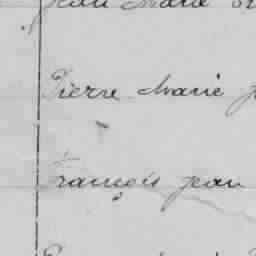 Jean Marie
Pierre Marie
François jean